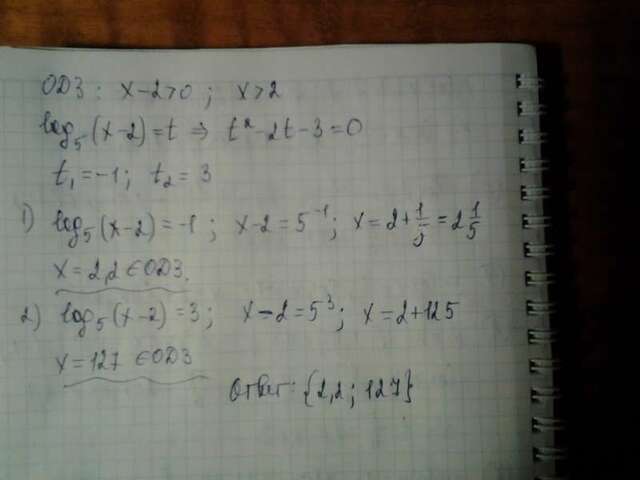 ОДЗ: x-2>0; x>2
log₅(x-2)=t ⇒ t²-2t-3=0
t₁=-1; t₂=3
1) log₅(x-2)=-1; x-2=5⁻¹; x=2+1/5=2 1/5
x=2,2 ∈ ОДЗ.
2) log₅(x-2)=3; x-2=5³; x=2+125
x=127 ∈ ОДЗ
Ответ: {2,2; 127}